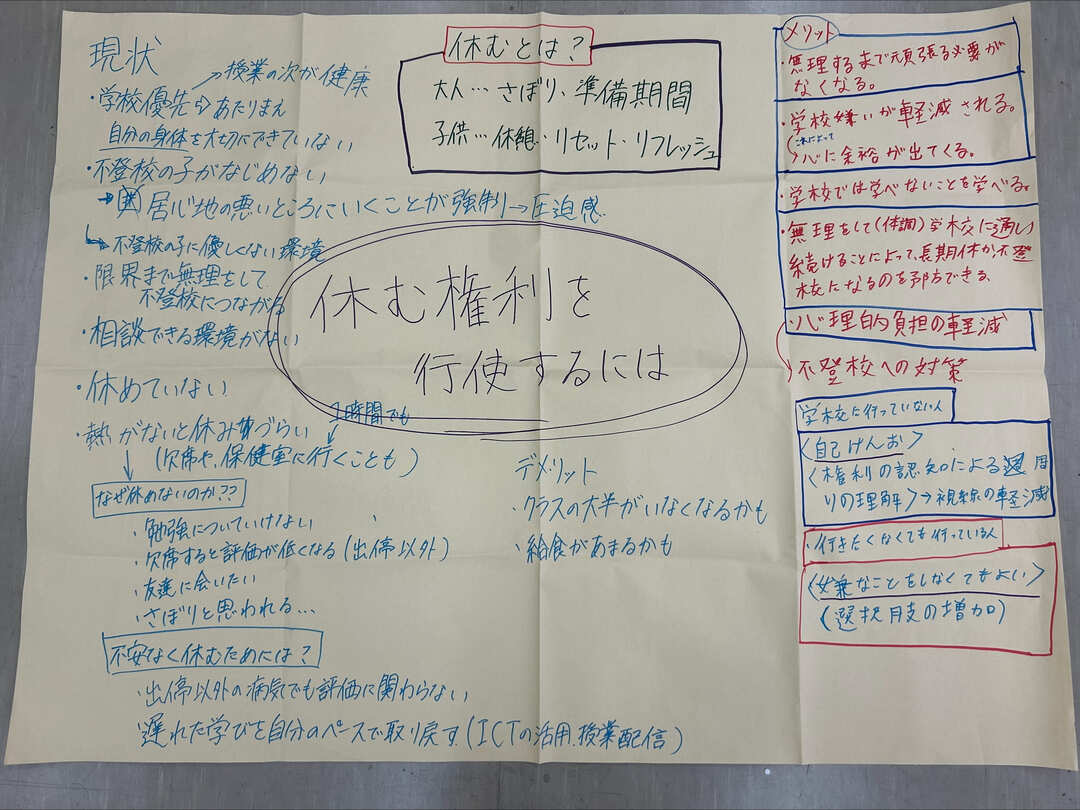 現状
→授業の次が健康
・学校優先⇨あたりまえ
自分の身体を大切にできていない
・不登校の子がなじめない
→居心地の悪いところにいくことが強制→圧迫感
→不登校の子に優しくない環境
・限界まで無理をして
不登校につながる
・相談できる環境がない
・休めていない
・熱がないと休みづらい
1時間でも
(欠席や、保健室に行くことも)
なぜ休めないのか??
・勉強についていけない
・欠席すると評価が低くなる(出停以外)
・友達に会いたい
・さぼりと思われる…
不安なく休むためには?
・出停以外の病気でも評価に関わらない
・遅れた学びを自分のペースで取り戻す(ICTの活用、授業配信)
休むとは?
大人…さぼり、準備期間
子供…休憩・リセット・リフレッシュ
休む権利を
行使するには
デメリット
・クラスの大半がいなくなるかも
・給食があまるかも
メリット
・無理するまで頑張る必要が
なくなる。
・学校嫌いが軽減される。
これによって
心に余裕が出てくる。
・学校では学べないことを学べる。
・無理をして(体調)学校に通い
続けることによって、長期休か不登
校になるのを予防できる、
・心理的負担の軽減
不登校への対策
学校に行っていない人
〈自己けんお〉
〈権利の認知による周
りの理解〉→視線の軽減
・行きたくなくても行っている人
〈なことをしなくてもよい〉
(選択肢の増加)